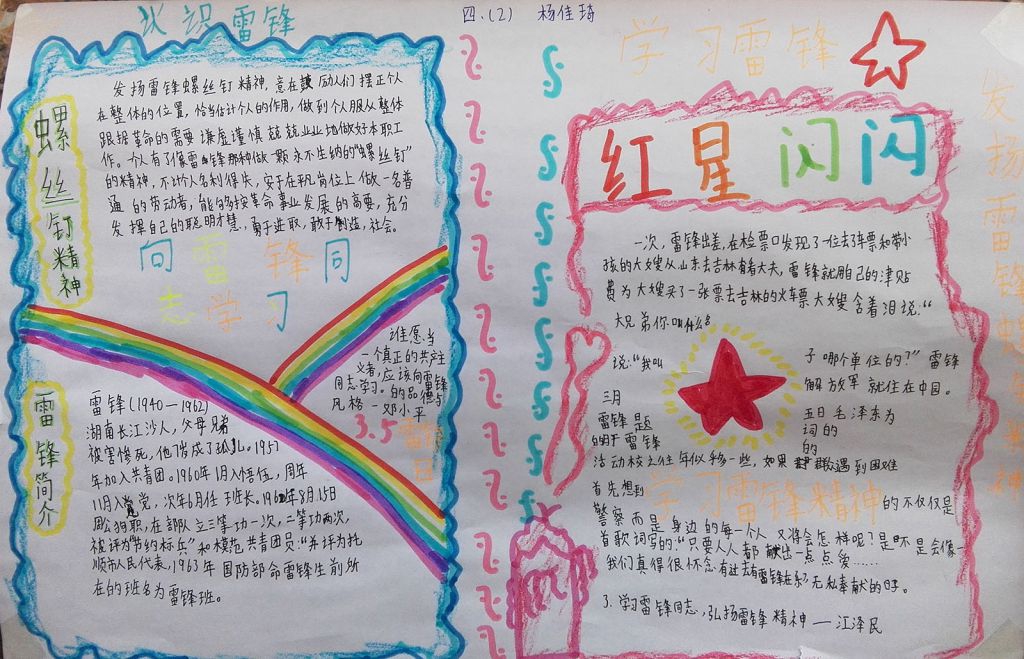 认识雷锋
四.(2) 杨佳琦
螺丝钉精神
发扬雷锋螺丝钉精神，意在鼓励人们摆正个人
在整体的位置，恰当估计个人的作用，做到个人服从整体
跟据革命的需要谦虚谨慎兢兢业业地做好本职工
作。个人有了像雷锋那种做一颗永不生锈的“螺丝钉”
的精神，不计个人名利得失，安于在平凡岗位上做一名普
通的劳动者，能够按革命事业发展的需要，充分
发挥自己的聪明才慧，勇于进取，敢于制造，社会。
向雷锋同
志学习
谁愿当
一个真正的共产主
义者，应该向雷锋
同志学习。的品德与
风格－邓小平
3.5
雷锋日
雷锋简介
雷锋(1940—1962)
湖南长江沙人，父母兄弟
被害惨死，他7岁成了孤儿。1957
年加入共青团。1960年1月入伍，周年
11月入党，次年6月任班长。1962年8月15日
因公殉职，在部队立三等功一次，二等功两次，
被评为“节约标兵”和模范共青团员：“并评为抚
顺市人民代表，1963年国防部命雷锋生前所
在的班名为雷锋班。
学习雷锋
红星闪闪
发扬雷锋螺丝钉精神
一次，雷锋出差，在检票口发现了一位丢了车票和带小
孩的大嫂从山东去吉林看丈夫，雷锋就用自己的津贴
费为大嫂买了一张票去吉林的火车票大嫂含着泪说：“
大兄弟你叫什么名
子哪个单位的？”雷锋
说：“我叫
解放军就住在中国。
三月
五日毛泽东为
雷锋题
词的
雷锋
的
活动校之往年似乎多一些，如果
遇到困难
首先想到
学习雷锋精神
的不仅仅是
警察而是身边的每一个人又得会怎样呢？是不是会像一
首歌词写的：“只要人人都献出一点点爱……
我们真得很怀念有过去有雷锋在多了无私奉献的好。
3.学习雷锋同志，弘扬雷锋精神——江泽民